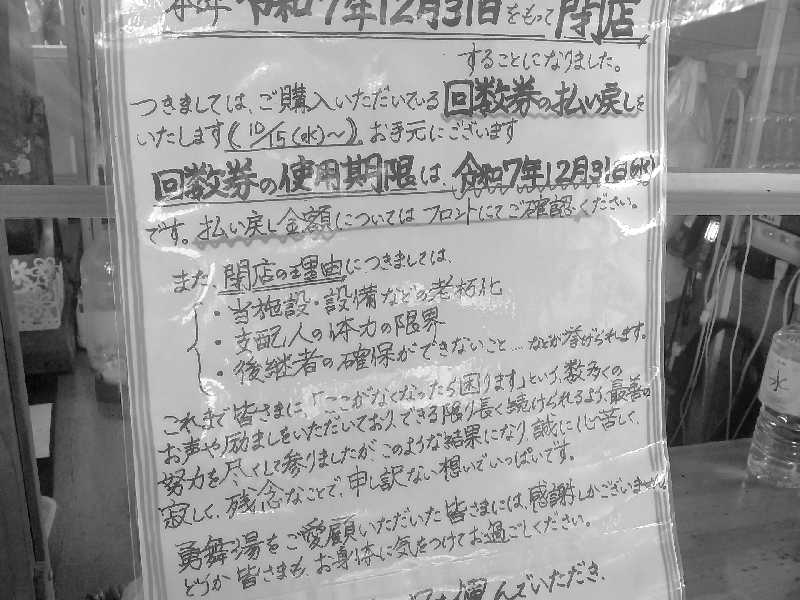 本年 令和7年12月31日をもって閉店
することになりました。
つきましては、ご購入いただいている回数券の払い戻しを
いたします(10/15(水)~)。お手元にございます
回数券の使用期限は、令和7年12月31日(水)
です。払い戻し金額についてはフロントにてご確認ください。
また、閉店の理由につきましては、
・当施設・設備などの老朽化
・支配人の体力の限界
・後継者の確保ができないこと…などが挙げられます。
これまで皆さまに、「ここがなくなったら困ります」という、数多くの
お声や励ましをいただいており、できる限り長く続けられるよう、最善の
努力を尽くして参りましたが、このような結果になり、誠に心苦しく、
寂しく、残念なことで、申し訳ない想いでいっぱいです。
勇舞湯をご愛顧いただいた皆さまには、感謝しかございません。
どうか皆さまも、お身体に気をつけてお過ごしください。
んでいただき、
水